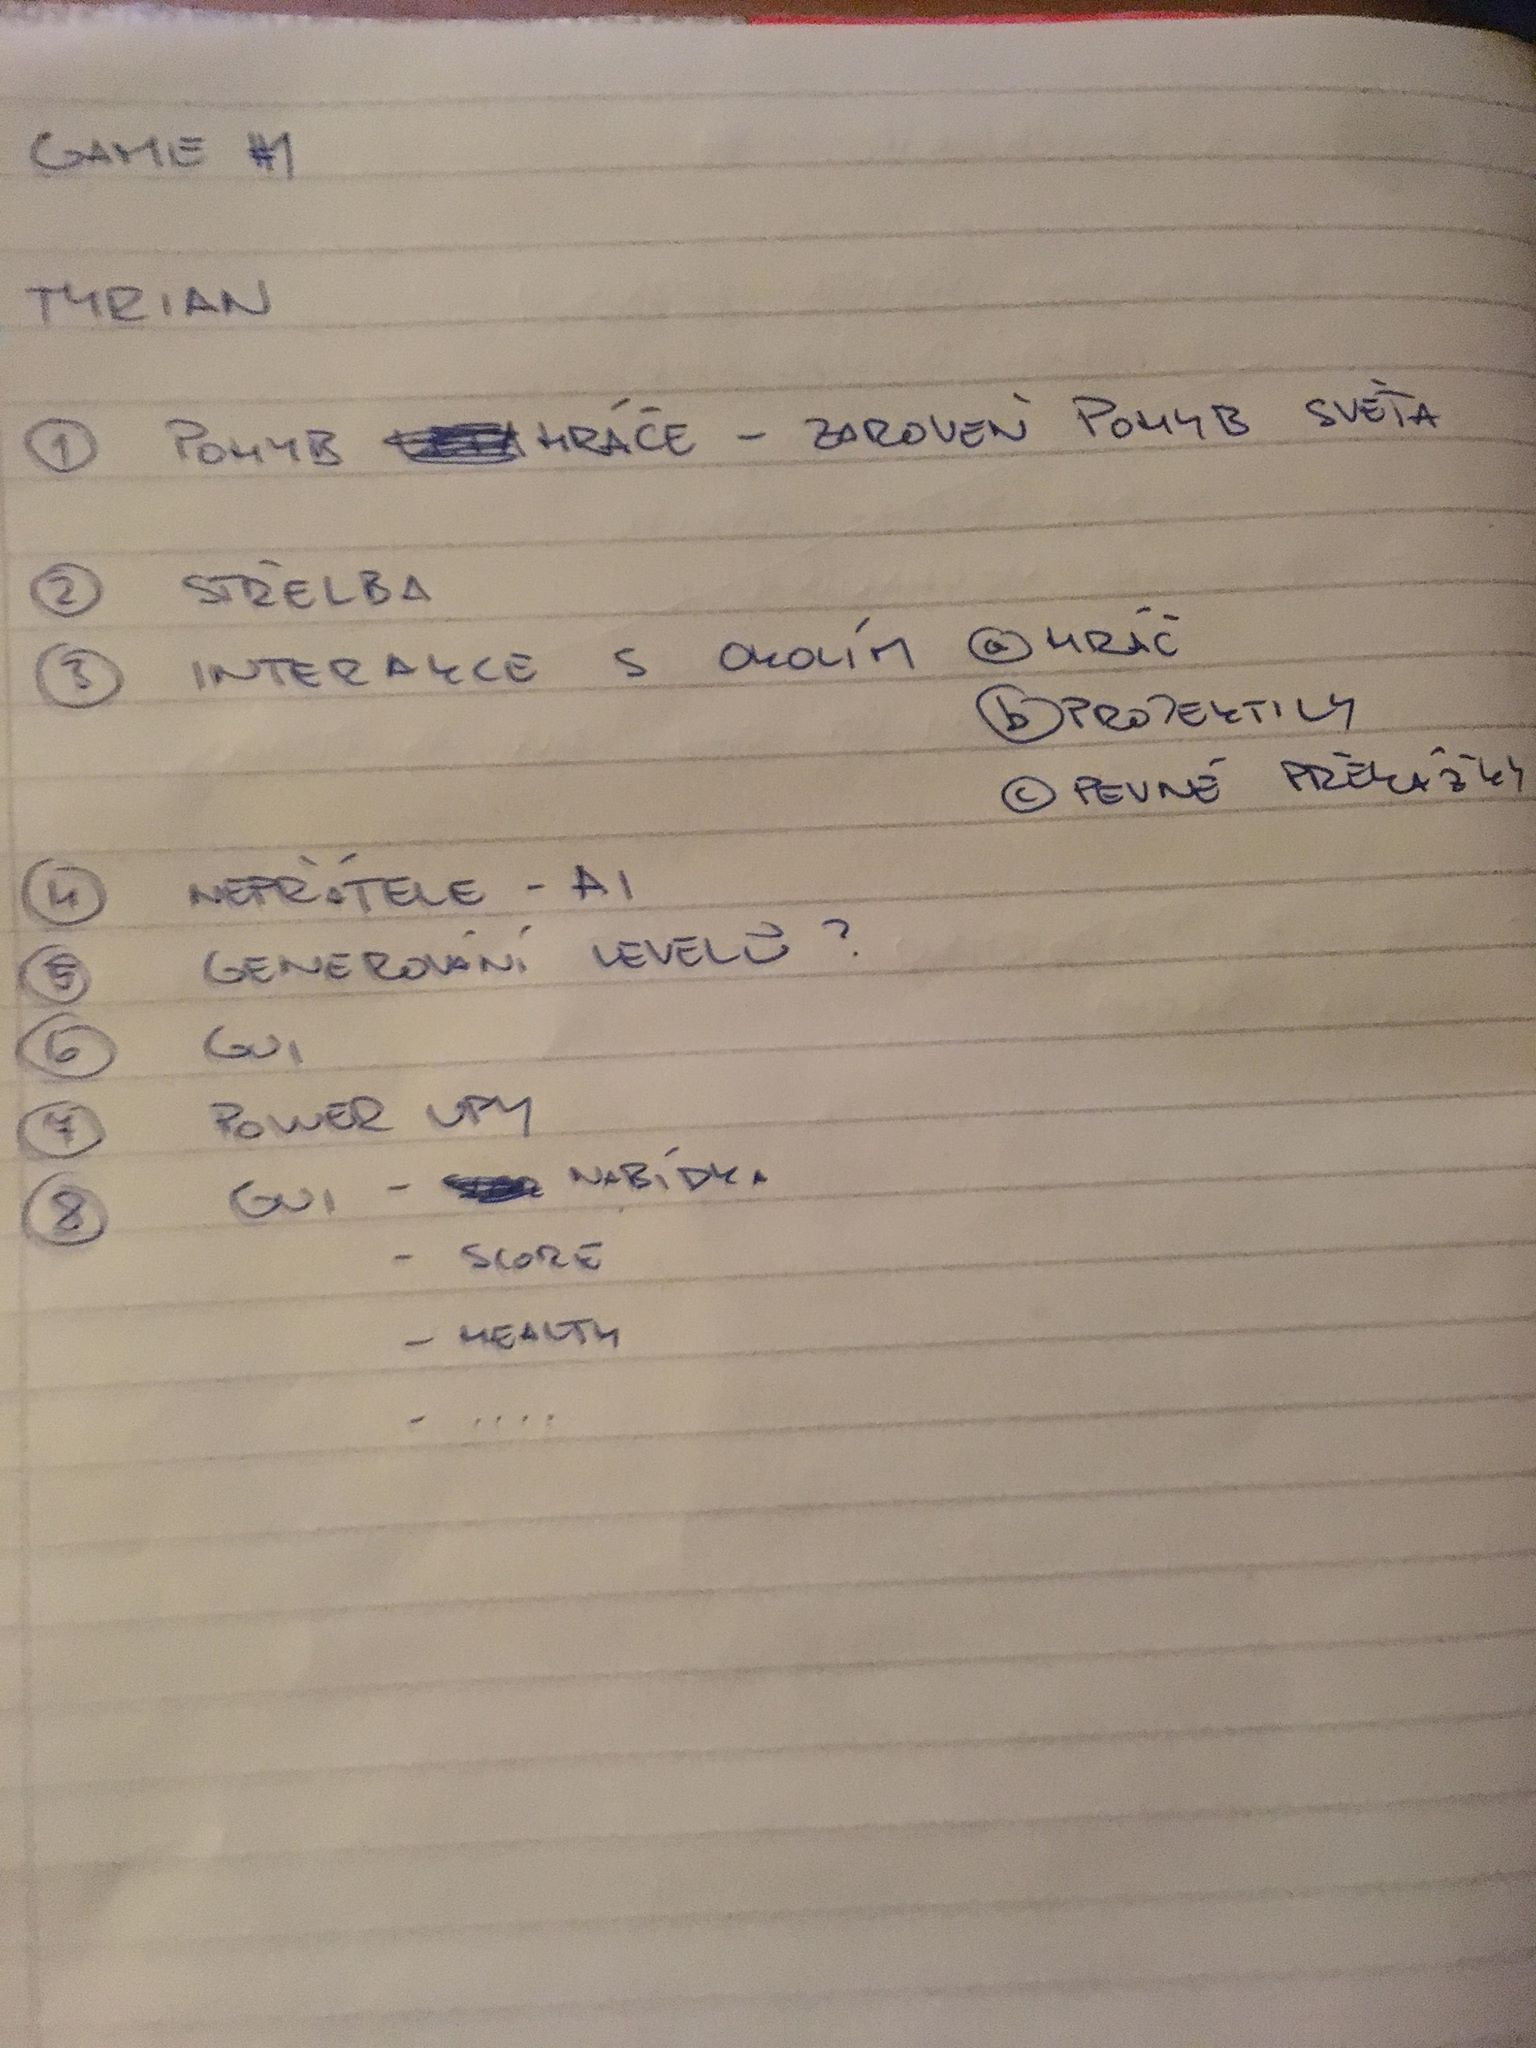 GAME #1
TYRIAN
① POHYB HRÁČE - ZAROVEŇ POHYB SVĚTA
② STŘELBA
③ INTERAKCE S OKOLÍM ⓐ HRÁČ
ⓑ PROJEKTILY
ⓒ PEVNÉ PŘEKÁŽKY
④ NEPŘÁTELE - AI
⑤ GENEROVÁNÍ LEVELŮ?
⑥ GUI
⑦ POWER UPY
⑧ GUI - NABÍDKA
- SCORE
- HEALTH
- ....